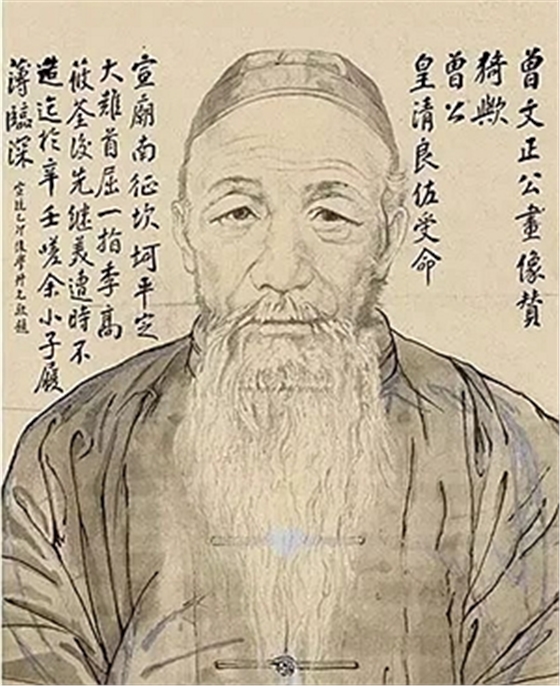 曾文正公畫像贊
猗歟
曾公
皇清良佐受命
宣廟南征坎坷平定
大難首屈一指李高
筱荃後先继美遭時不
造迄於辛壬嗟余小子履
薄臨深
宣統乙卯後學升允敬題